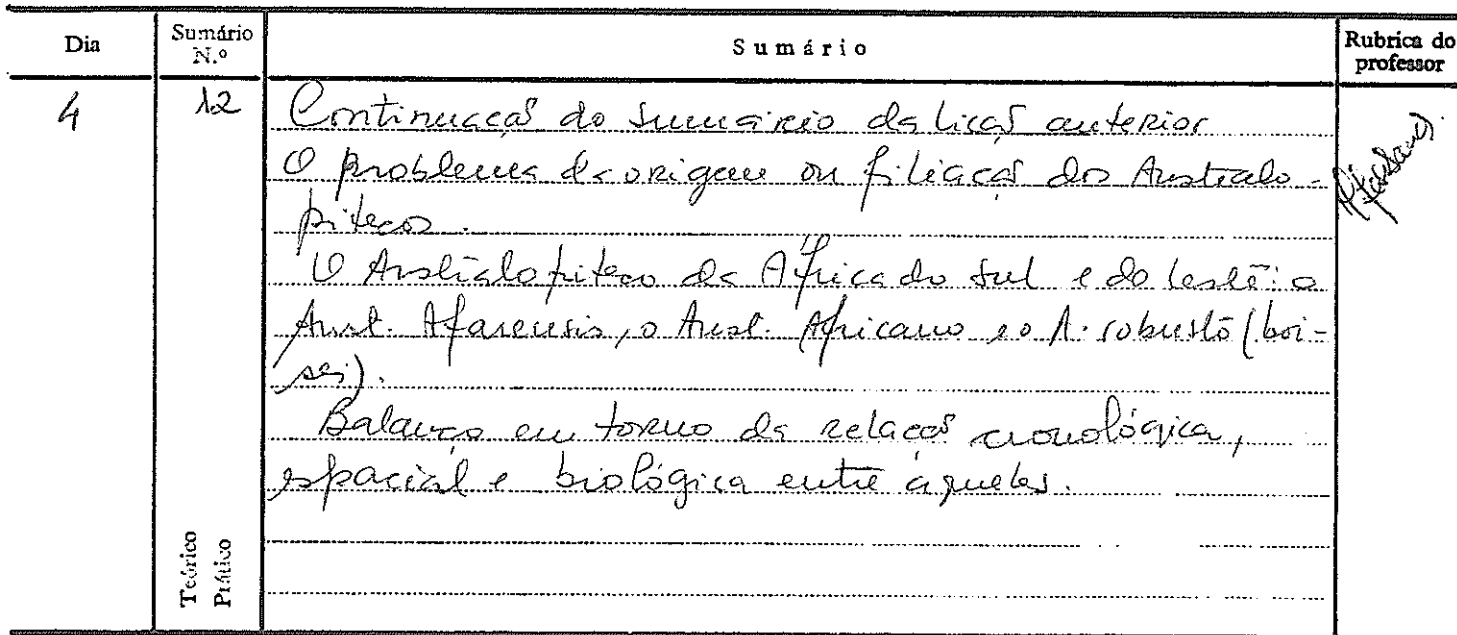 Dia Sumário N.º Sumário Rubrica do professor
4 12 Continuação do sumário da lição anterior
O problema da origem ou filiação dos Australo-
pitecos.
O Australopiteco da África do Sul e do leste: o
Aust. Afarensis, o Aust. Africano e o A. robusto (boi-
sei).
Balanço em torno da relação cronológica,
espacial e biológica entre aqueles.
Teórico
Prático